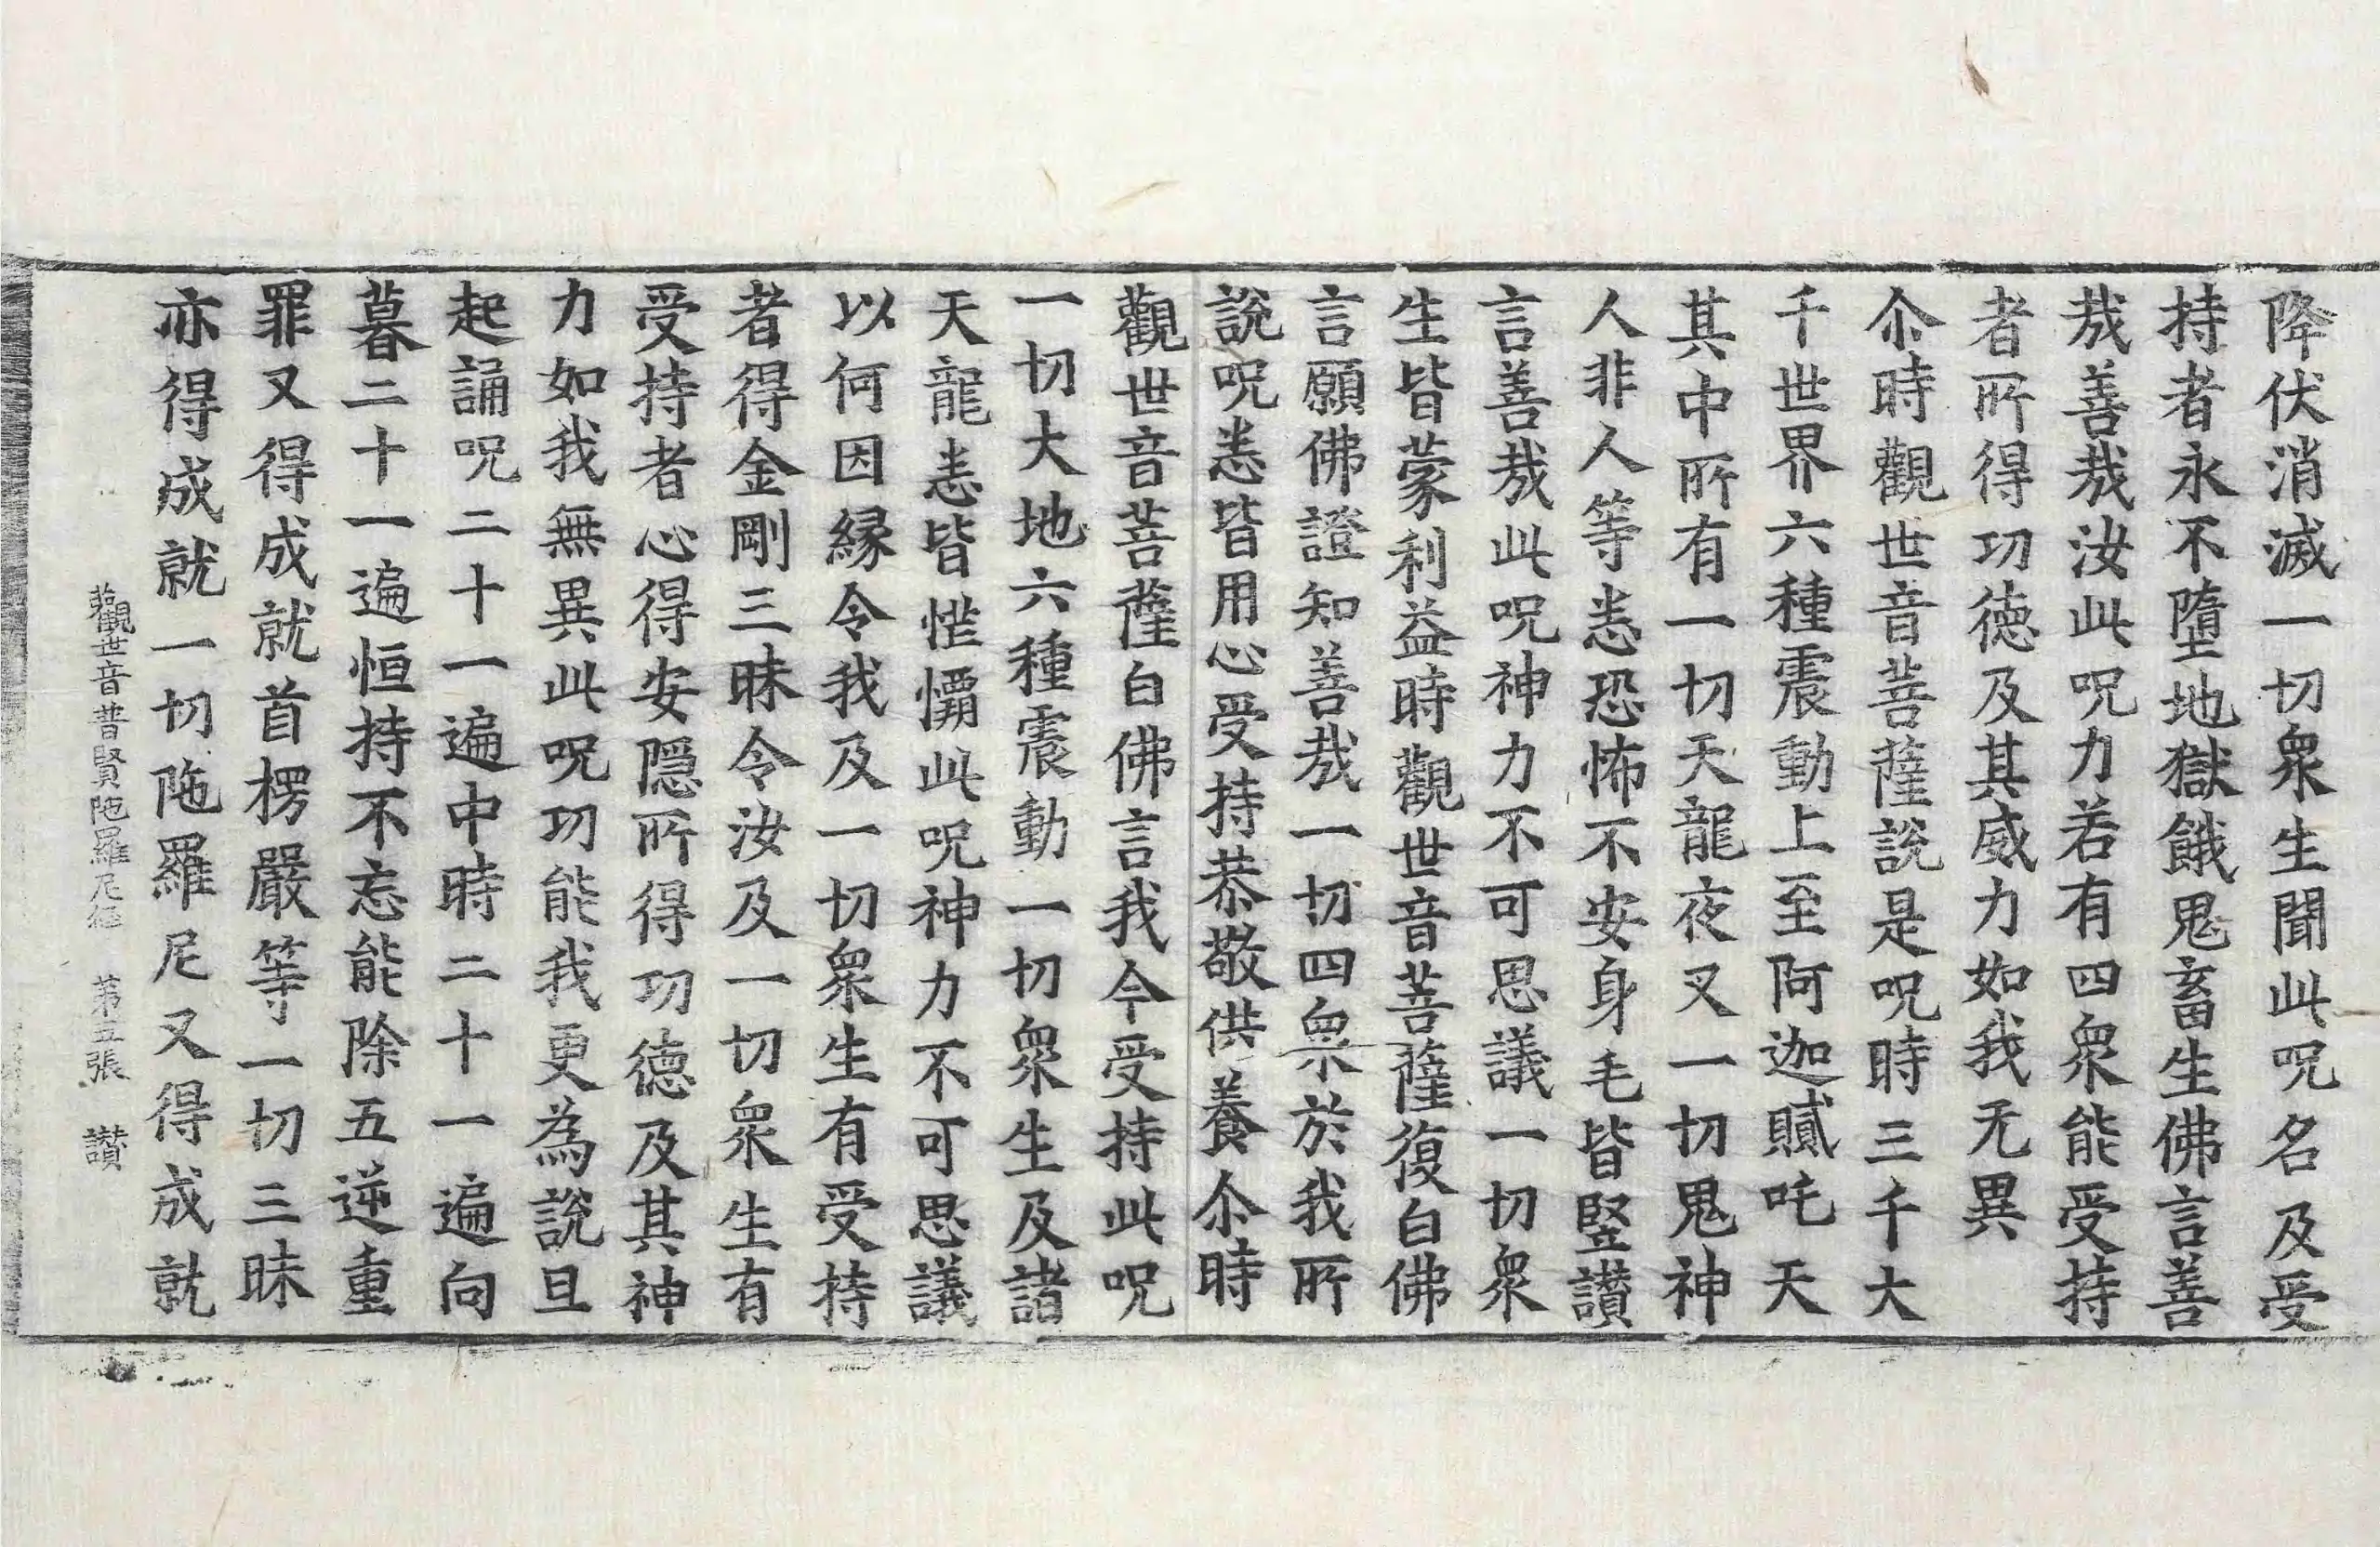 降伏消滅一切衆生聞此呪名及受
持者永不墮地獄餓鬼畜生佛言善
哉善哉汝此呪力若有四衆能受持
者所得功德及其威力如我无異
尒時觀世音菩薩說是呪時三千大
千世界六種震動上至阿迦膩吒天
其中所有一切天龍夜叉一切鬼神
人非人等恙恐怖不安身毛皆竪讃
言善哉此呪神力不可思議一切衆
生皆蒙利益時觀世音菩薩復白佛
言願佛證知善哉一切四衆於我所
說呪恙皆用心受持恭敬供養尒時
觀世音菩薩白佛言我今受持此呪
一切大地六種震動一切衆生及諸
天龍恙皆恠懼此呪神力不可思議
以何因縁令我及一切衆生有受持
者得金剛三昧令汝及一切衆生有
受持者心得安隱所得功德及其神
力如我無異此呪功能我更為說旦
起誦呪二十一遍中時二十一遍向
暮二十一遍恒持不忘能除五逆重
罪又得成就首楞嚴等一切三昧
亦得成就一切陁羅尼又得成就
觀世音普賢陁羅尼經 苐五張 讃